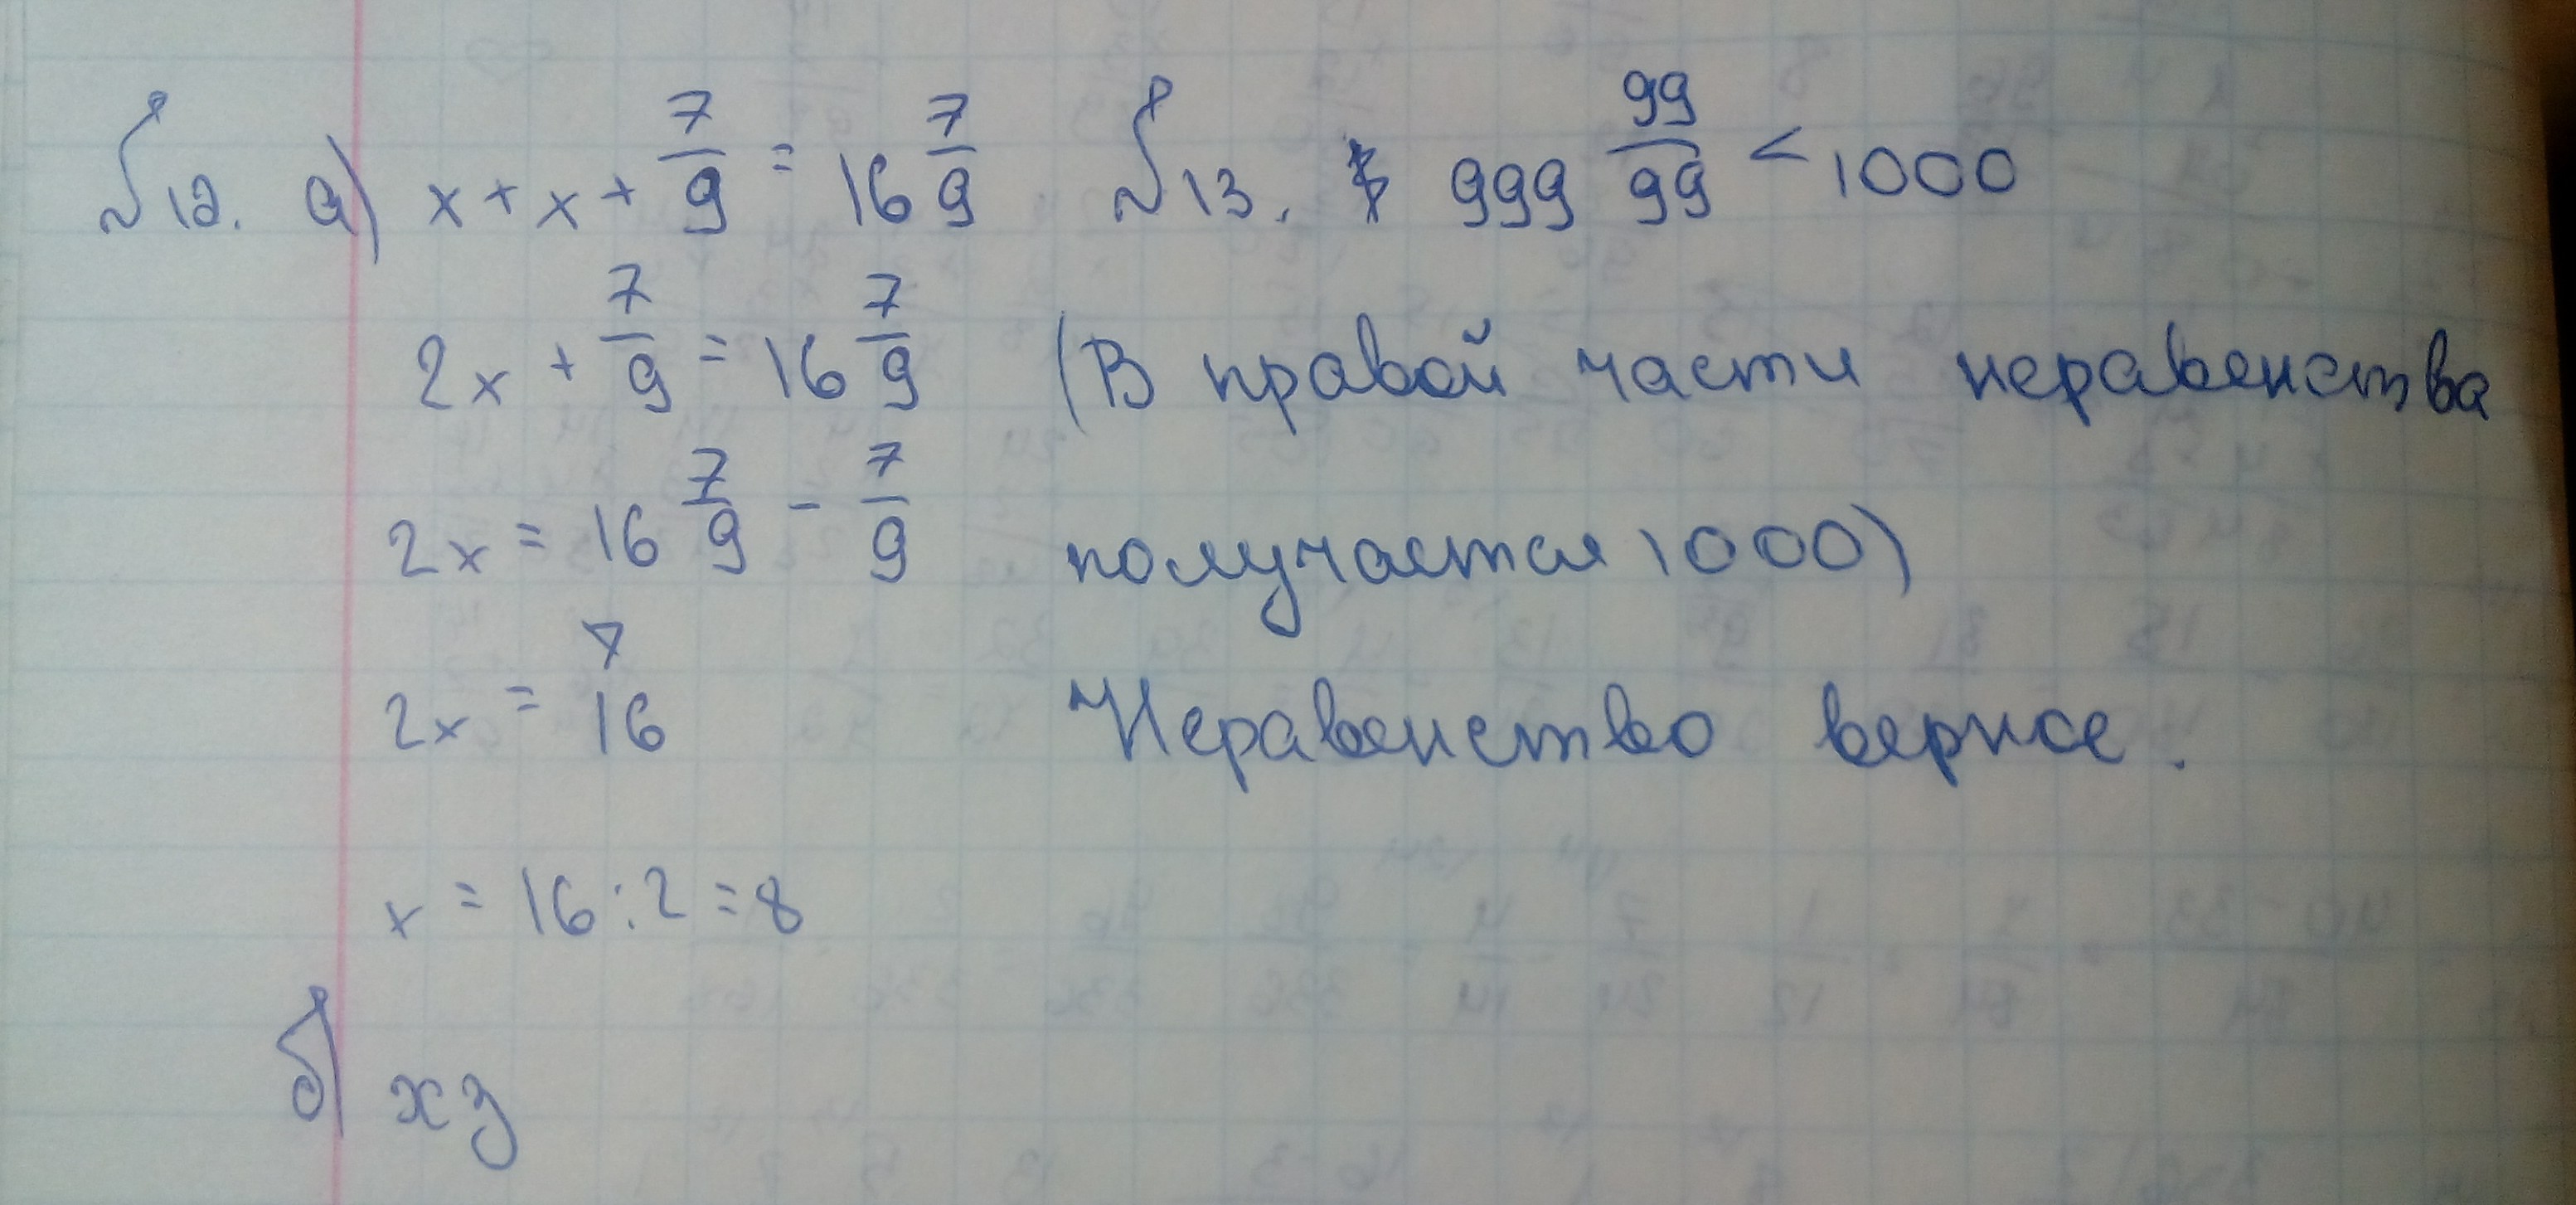 №12. а) x + x + 7/9 = 16 7/9
2x + 7/9 = 16 7/9
2x = 16 7/9 - 7/9
2x = 16
x = 16 : 2 = 8
б) хз
№13. 999 99/99 < 1000
(В правой части неравенства
получается 1000)
Неравенство верное.